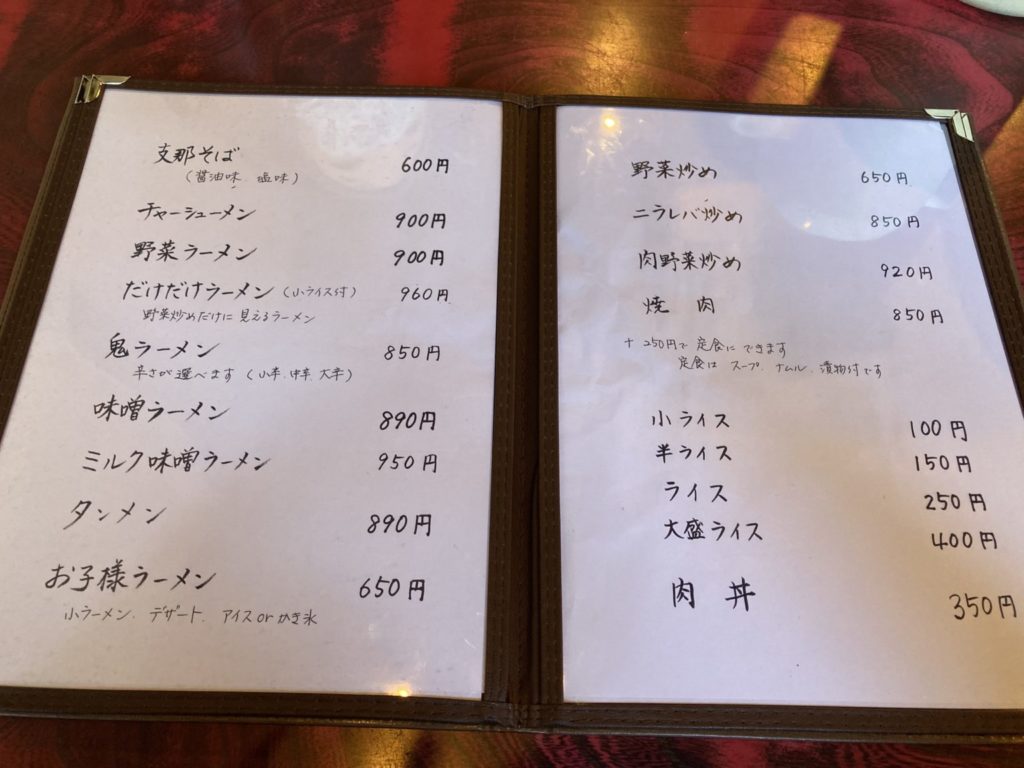 支那そば 600円
（醤油味、塩味）
チャーシューメン 900円
野菜ラーメン 900円
だけだけラーメン（小ライス付） 960円
野菜炒めだけに見えるラーメン
鬼ラーメン 850円
辛さが選べます（小辛、中辛、大辛）
味噌ラーメン 890円
ミルク味噌ラーメン 950円
タンメン 890円
お子様ラーメン 650円
小ラーメン、デザート、アイスorかき氷
野菜炒め 650円
ニラレバ炒め 850円
肉野菜炒め 920円
焼肉 850円
+250円で定食にできます
定食は スープ、ナムル、漬物付です
小ライス 100円
半ライス 150円
ライス 250円
大盛ライス 400円
肉丼 350円